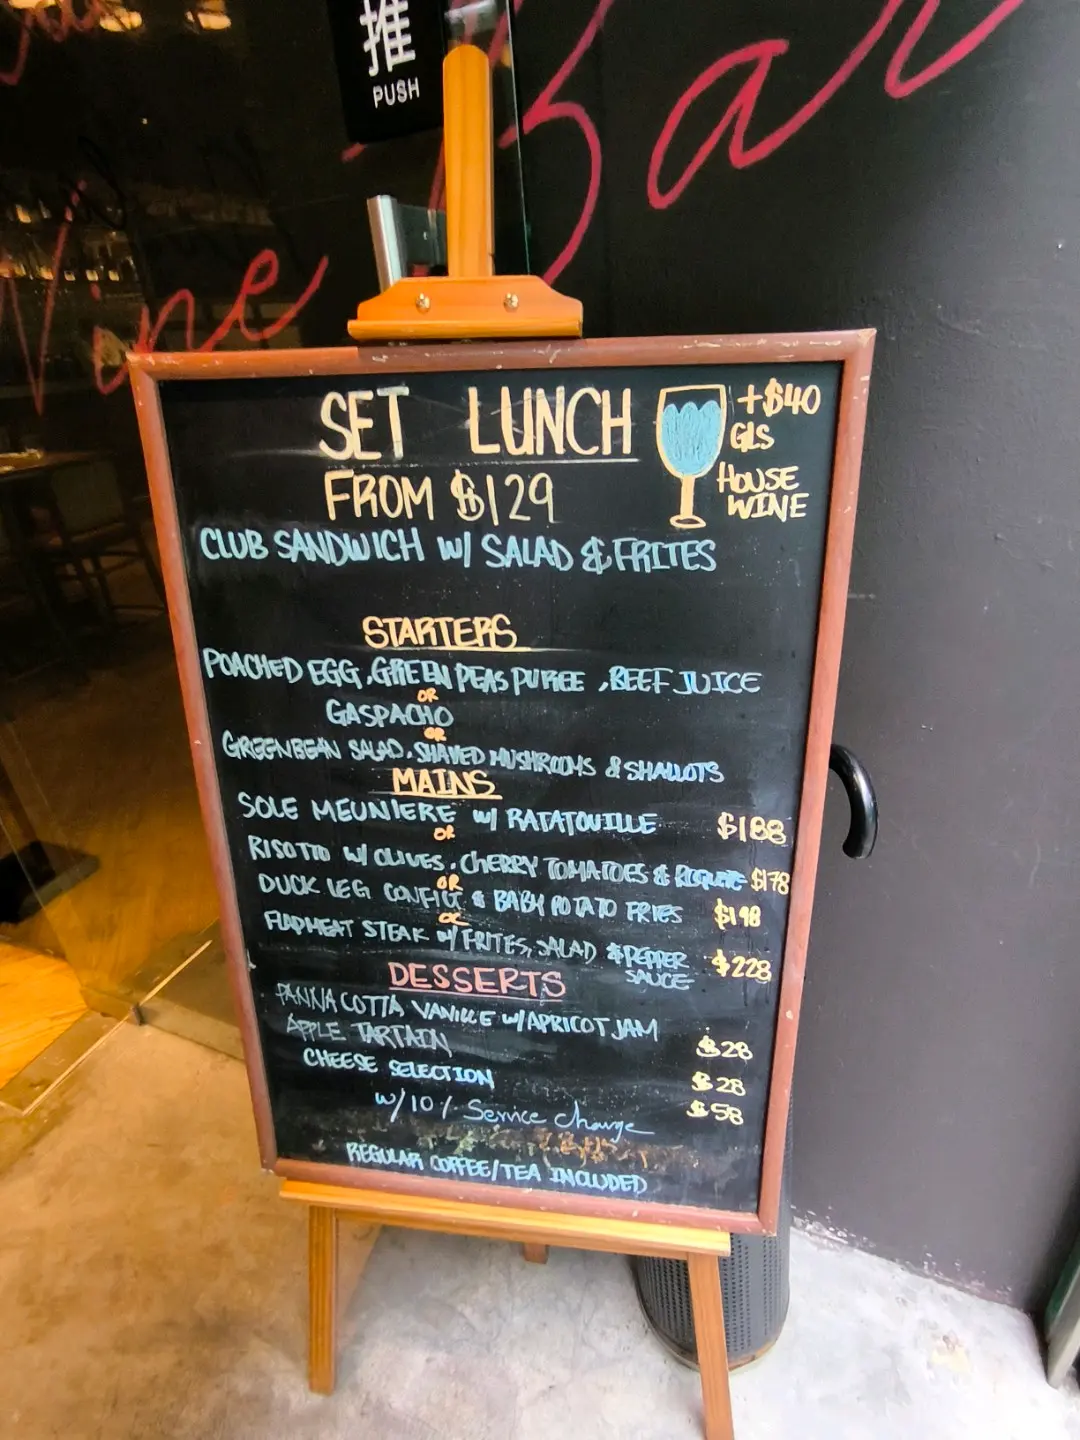 推
PUSH
Wine Bar
SET LUNCH
FROM $129
+$40
GLS
HOUSE
WINE
CLUB SANDWICH W/ SALAD & FRITES
STARTERS
POACHED EGG, GREEN PEAS PUREE, BEEF JUICE
OR
GASPACHO
OR
GREENBEAN SALAD, SHAVED MUSHROOMS & SHALLOTS
MAINS
SOLE MEUNIERE W/ RATATOUILLE $188
OR
RISOTTO W/ OLIVES, CHERRY TOMATOES & $178
OR
DUCK LEG CONFIT & BABY POTATO FRIES $198
OR
FLAPMEAT STEAK W/ FRITES, SALAD & PEPPER SAUCE $228
DESSERTS
PANNA COTTA VANILLE W/ APRICOT JAM $28
APPLE TARTAIN $28
CHEESE SELECTION $58
W/ 10% Service Charge
REGULAR COFFEE/TEA INCLUDED